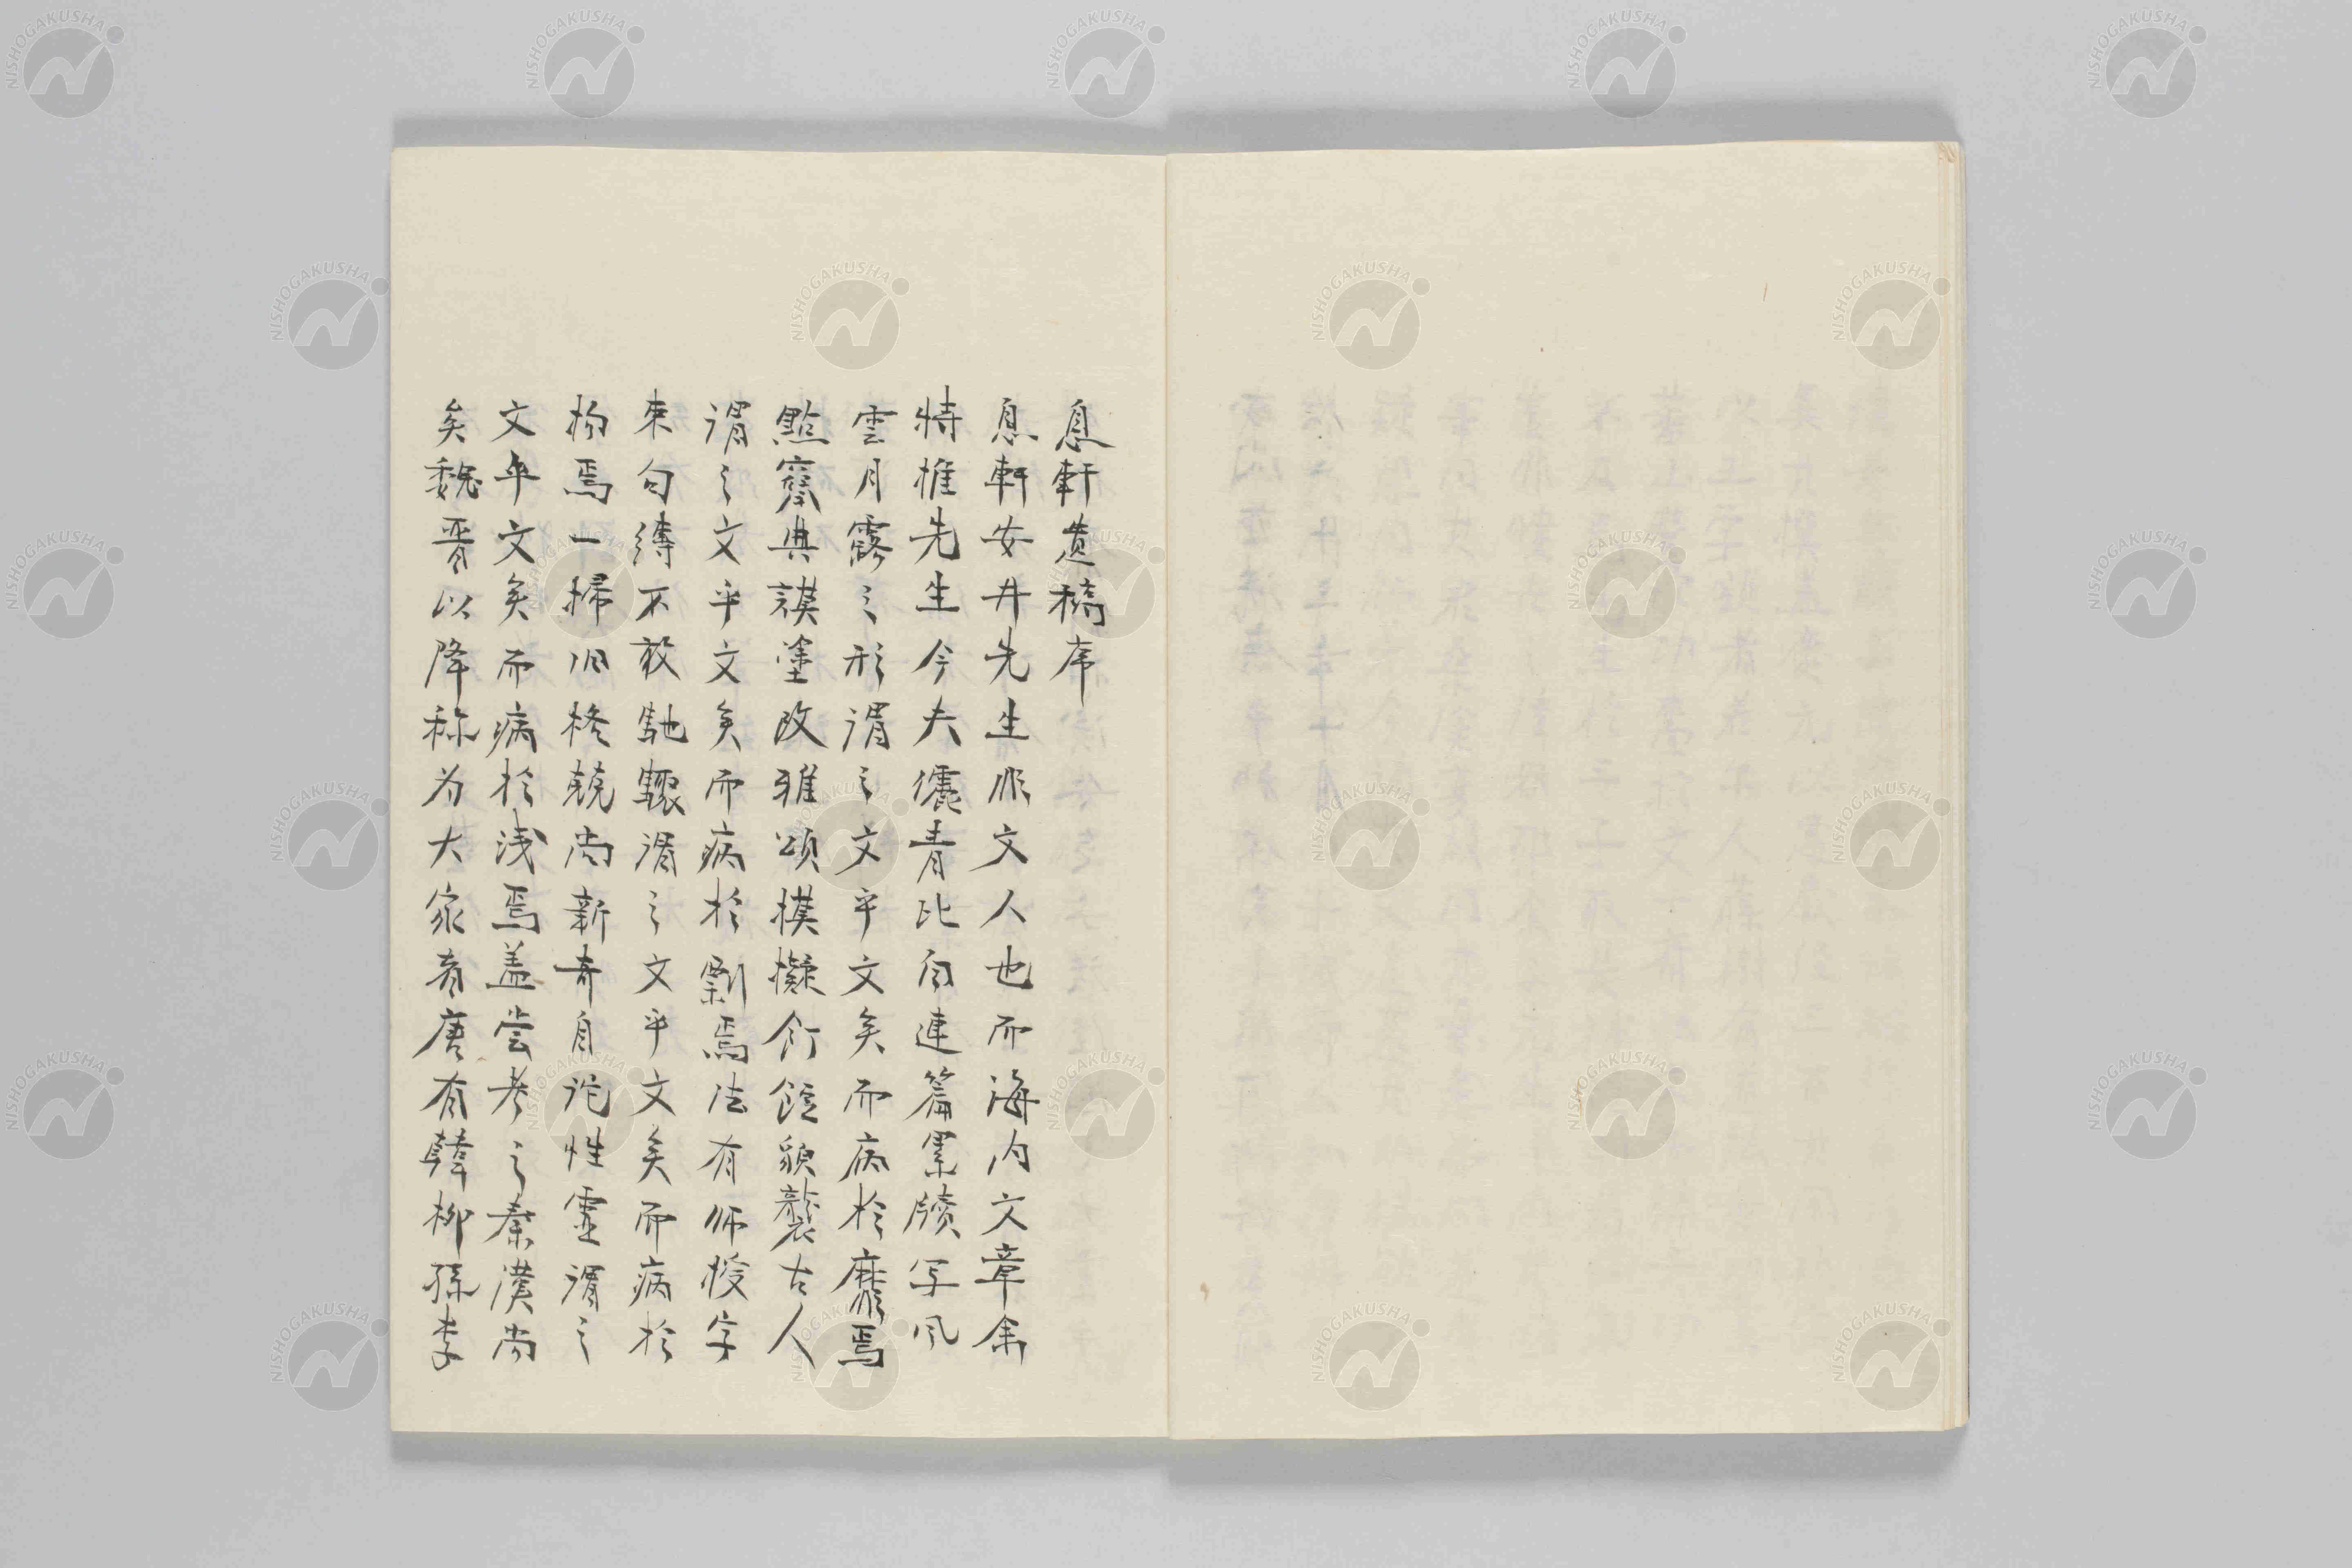 息軒遺稿序
息軒安井先生非文人也而海内文章余
特推先生今夫儷青比白連篇累牘写風
雲月露之形謂之文乎文矣而病於靡焉
點竄典謨塗改雅頌摸擬飣餖貌襲古人
謂之文乎文矣而病於剽焉法有師授字
束句縛不敢馳驟謂之文乎文矣而病於
拘焉一掃旧格競尚新奇自詑性霊謂之
文乎文矣而病於浅焉盖尝考之秦漢尚
矣魏晋以降称为大家者唐有韓柳孫李
NISHOGAKUSHA